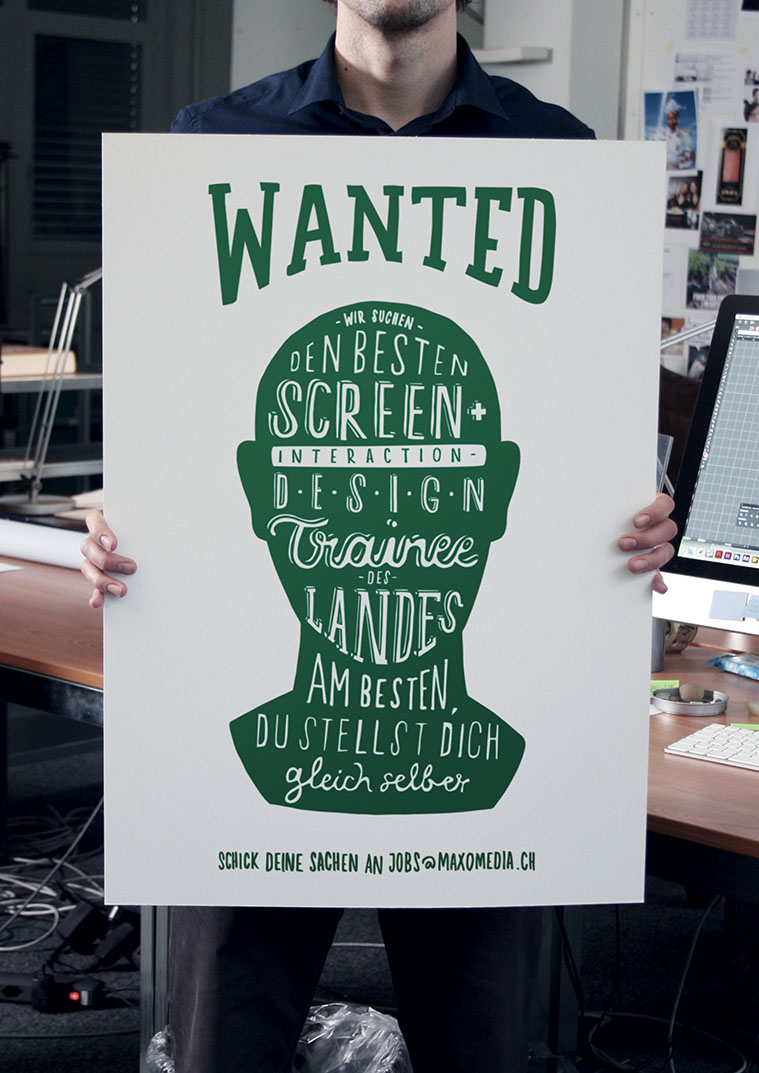 WANTED
-WIR SUCHEN-
DEN BESTEN
SCREEN+
INTERACTION-
D·E·S·I·G·N
Trainee
-DES-
LANDES
AM BESTEN,
DU STELLST DICH
gleich selber
SCHICK DEINE SACHEN AN JOBS@MAXOMEDIA.CH